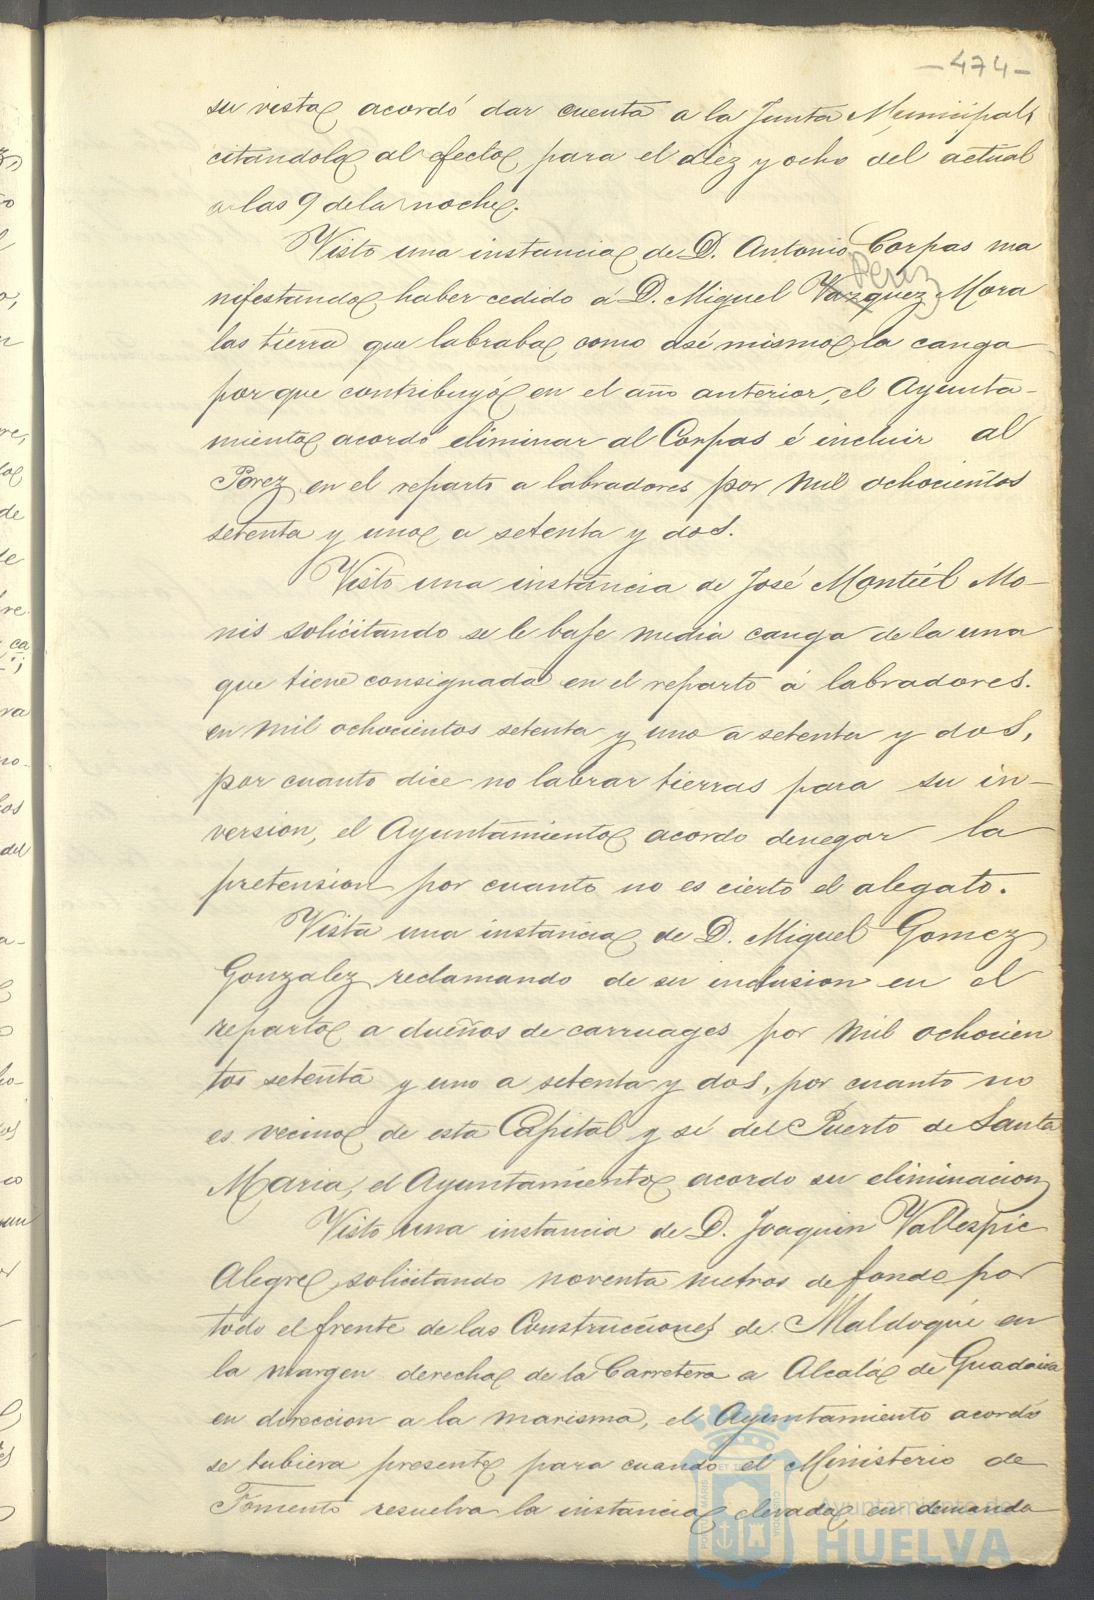 -474-
su vista acordó dar cuenta a la Junta Municipal,
citandola al efecto para el diez y ocho del actual
a las 9 de la noche.
Visto una instancia de D. Antonio Corpas ma
Perez
nifestando haber cedido á D. Miguel Vazquez Mora
las tierra que labraba como asi mismo la canga
por que contribuyó en el año anterior, el Ayunta-
miento acordó eliminar al Corpas é incluir al
Perez en el reparto a labradores por mil ochocientos
setenta y uno a setenta y dos.
Visto una instancia de José Montiel Mo-
nis solicitando se le baje media canga de la una
que tiene consignada en el reparto á labradores.
en mil ochocientos setenta y uno a setenta y dos,
por cuanto dice no labrar tierras para su in-
version, el Ayuntamiento acordo denegar la
pretension por cuanto no es cierto el alegato.
Vista una instancia de D. Miguel Gomez
Gonzalez reclamando de su inclusion en el
reparto a dueños de carruages por mil ochocien
tos setenta y uno a setenta y dos, por cuanto no
es vecino de esta Capital y si del Puerto de Santa
Maria, el Ayuntamiento acordo su eliminacion
Visto una instancia de D. Joaquin Vallespic
Alegre solicitando noventa metros de fondo por
todo el frente de las Construcciones de Maldogui en
la margen derecha de la Carretera a Alcalá de Guadaira
en direccion a la marisma, el Ayuntamiento acordó
se tubiera presente para cuando el Ministerio de
Fomento resuelva la instancia elevada en demanda
Ayuntamiento de
HUELVA